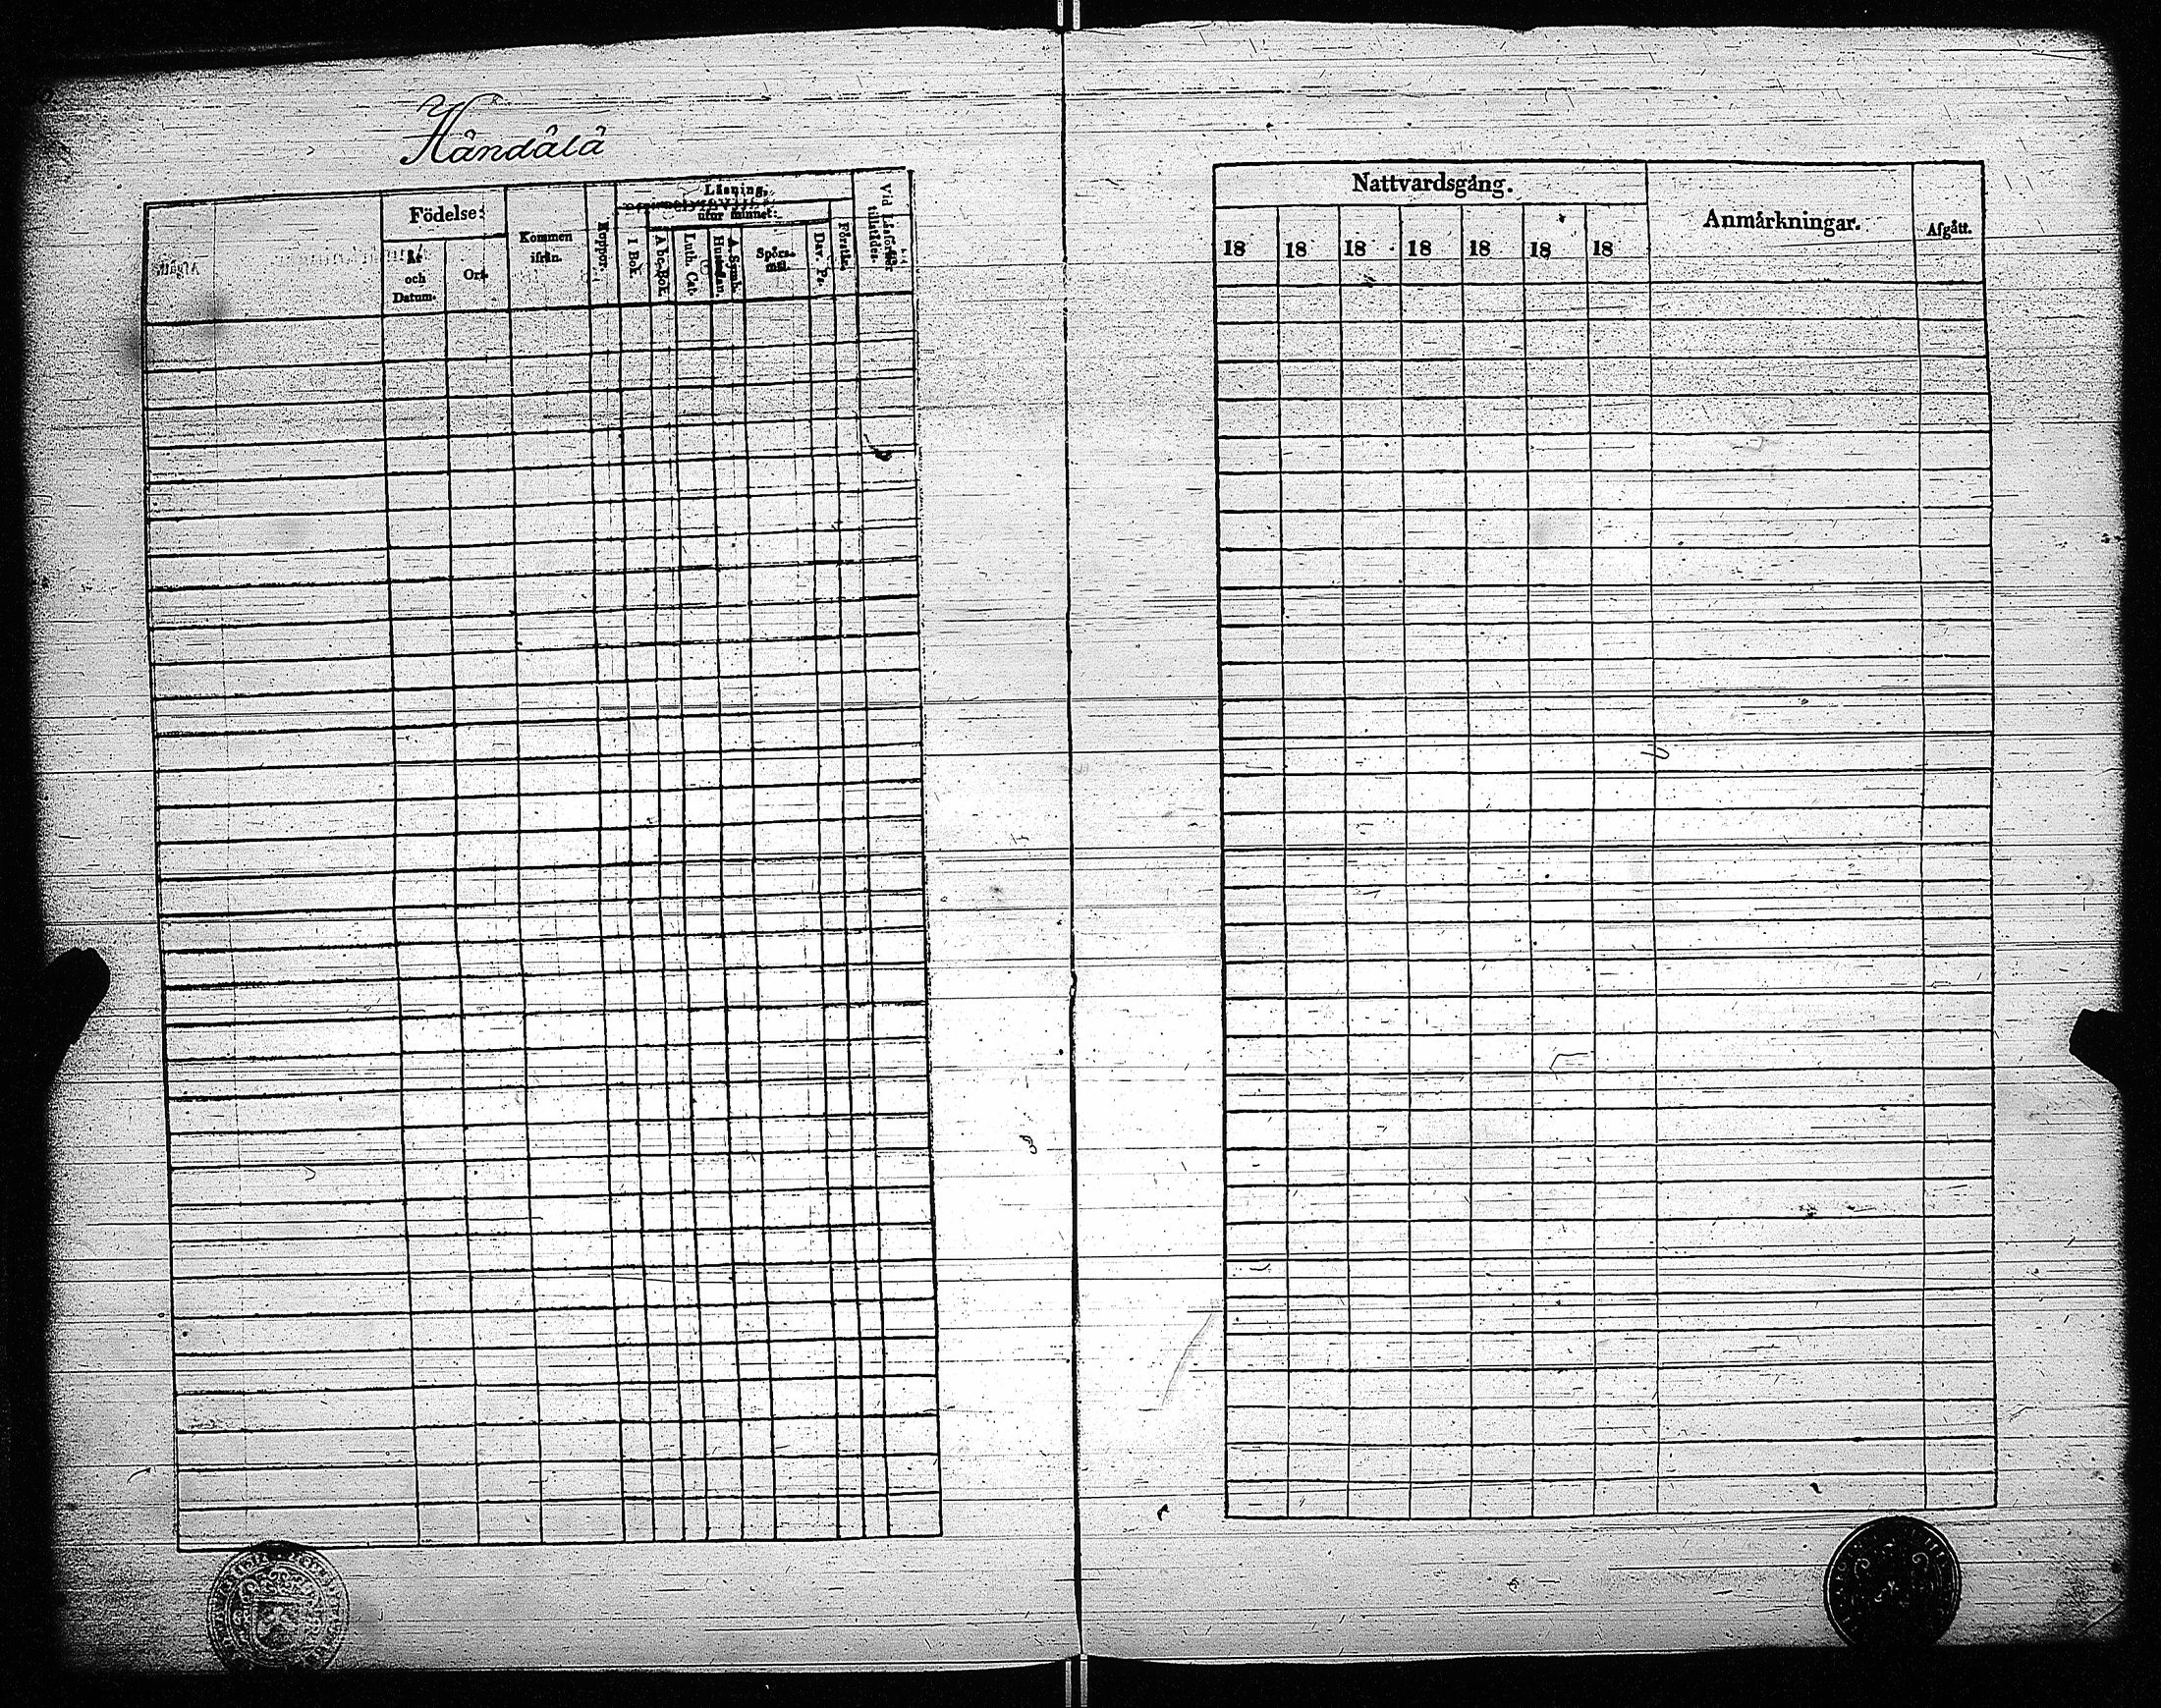 Håndålå
Födelse:
År
och
Datum.
Ort.
Kommen
ifrån.
Koppor.
Läsning.
utur minnet:
I Bok.
A b c Bok.
Luth. Cat.
Hustaflan.
A. Symb.
Spörs-
mål.
Dav. Ps.
Förstår.
Vid Läsförhör
tillstädes.
Nattvardsgång.
18 18 18 18 18 18 18
Anmärkningar.
Afgått.